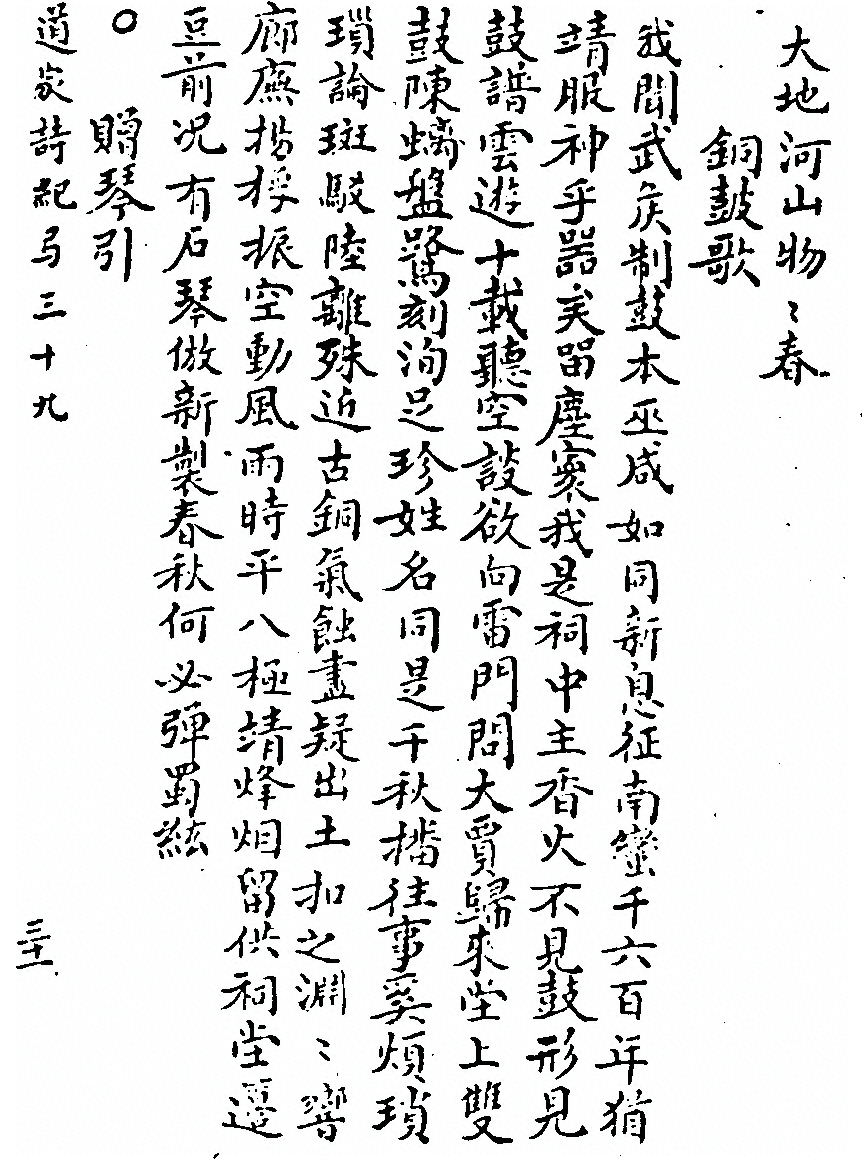 大地河山物〻春
銅鼓歌
我聞武矦制鼓本巫咸如同新息征南蠻千六百年猶
靖服神乎器矣留塵寰我是祠中主香火不見鼓形見
鼓譜雲遊十載聽空談欲向雷門問大賈歸來堂上雙
鼓陳螭盤鷺刻洵足珍姓名同是千秋播往事奚煩瑣
瑣論斑駁陸離殊近古銅氣蝕盡疑出土扣之淵〻響
廊廡撾桴振空動風雨時平八極靖烽烟留供祠堂遷
豆前况有石琴倣新製春秋何必弹蜀絃
○贈琴引
道家詩紀㢧三十九
三十一